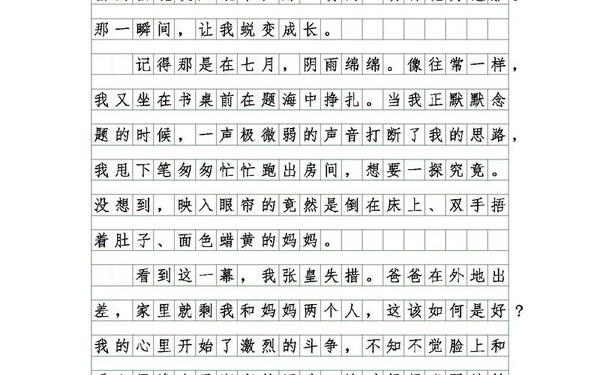 那一瞬间，让我蜕变成长。
记得那是在七月，阴雨绵绵。像往常一样，
我又坐在书桌前在题海中挣扎。当我正默默念
题的时候，一声极微弱的声音打断了我的思路，
我甩下笔匆匆忙忙跑出房间，想要一探究竟。
没想到，映入眼帘的竟然是倒在床上、双手捂
着肚子、面色蜡黄的妈妈。
看到这一幕，我张皇失措。爸爸在外地出
差，家里就剩我和妈妈两个人，这该如何是好？
我的心里开始了激烈的斗争，不知不觉脸上和